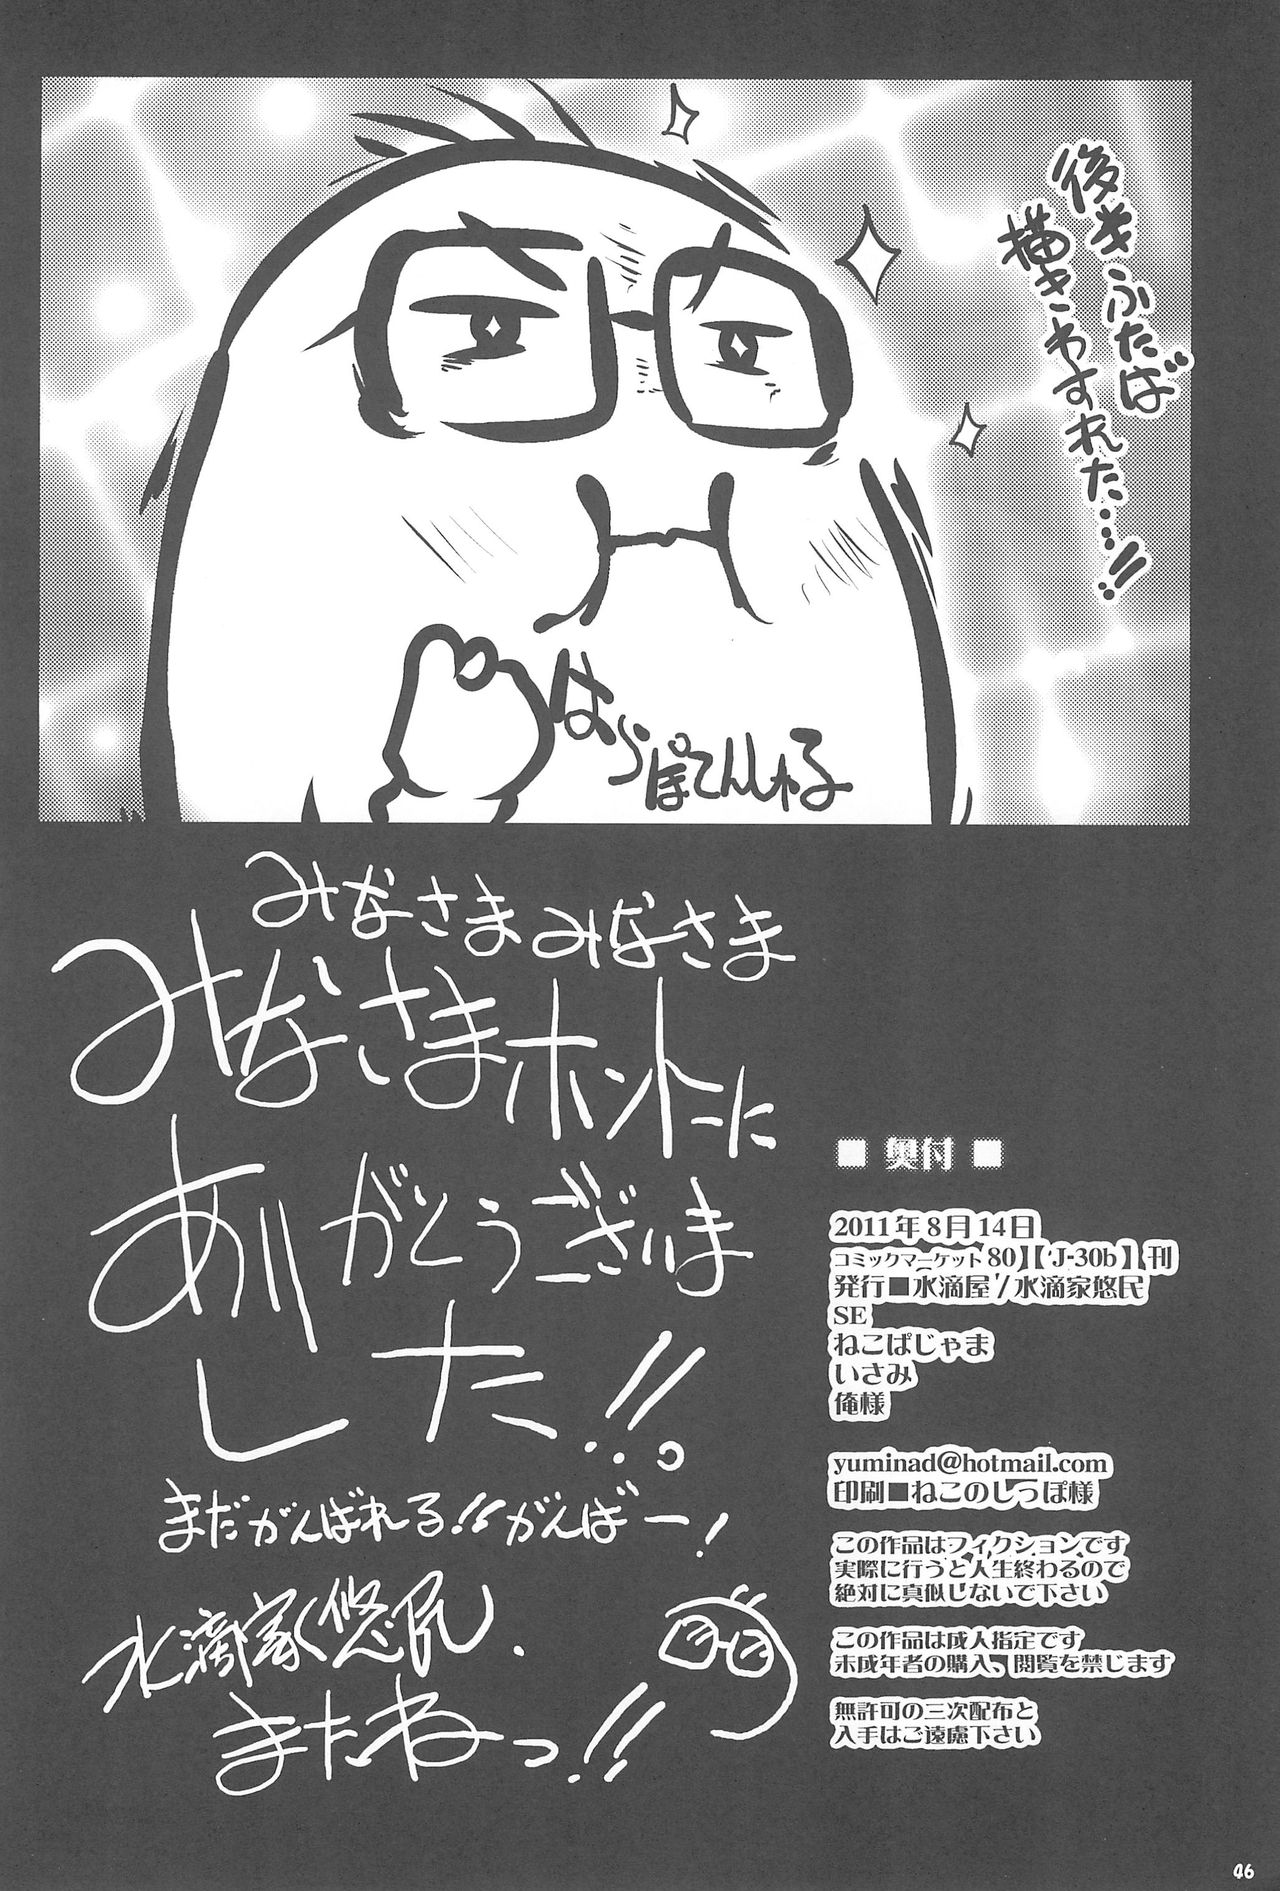 後ろふたば
描きわすれた…!!
はらぽてんしゃる
みなさまみなさま
みなさまホントーに
ありがとうございま
した!!。
まだがんばれる!!がんばー!
水滴家悠民、
またねっ!!
■ 奥付 ■
2011年8月14日
コミックマーケット80】【'J-30b】刊
発行■水滴屋'/水滴家悠民
SE
ねこぱじゃま
いさみ
俺様
yuminad@hotmail.com
印刷■ねこのしっぽ様
この作品はフィクションです
実際に行うと人生終わるので
絶対に真似しないで下さい
この作品は成人指定です
未成年者の購入、閲覧を禁じます
無許可の三次配布と
入手はご遠慮下さい
46